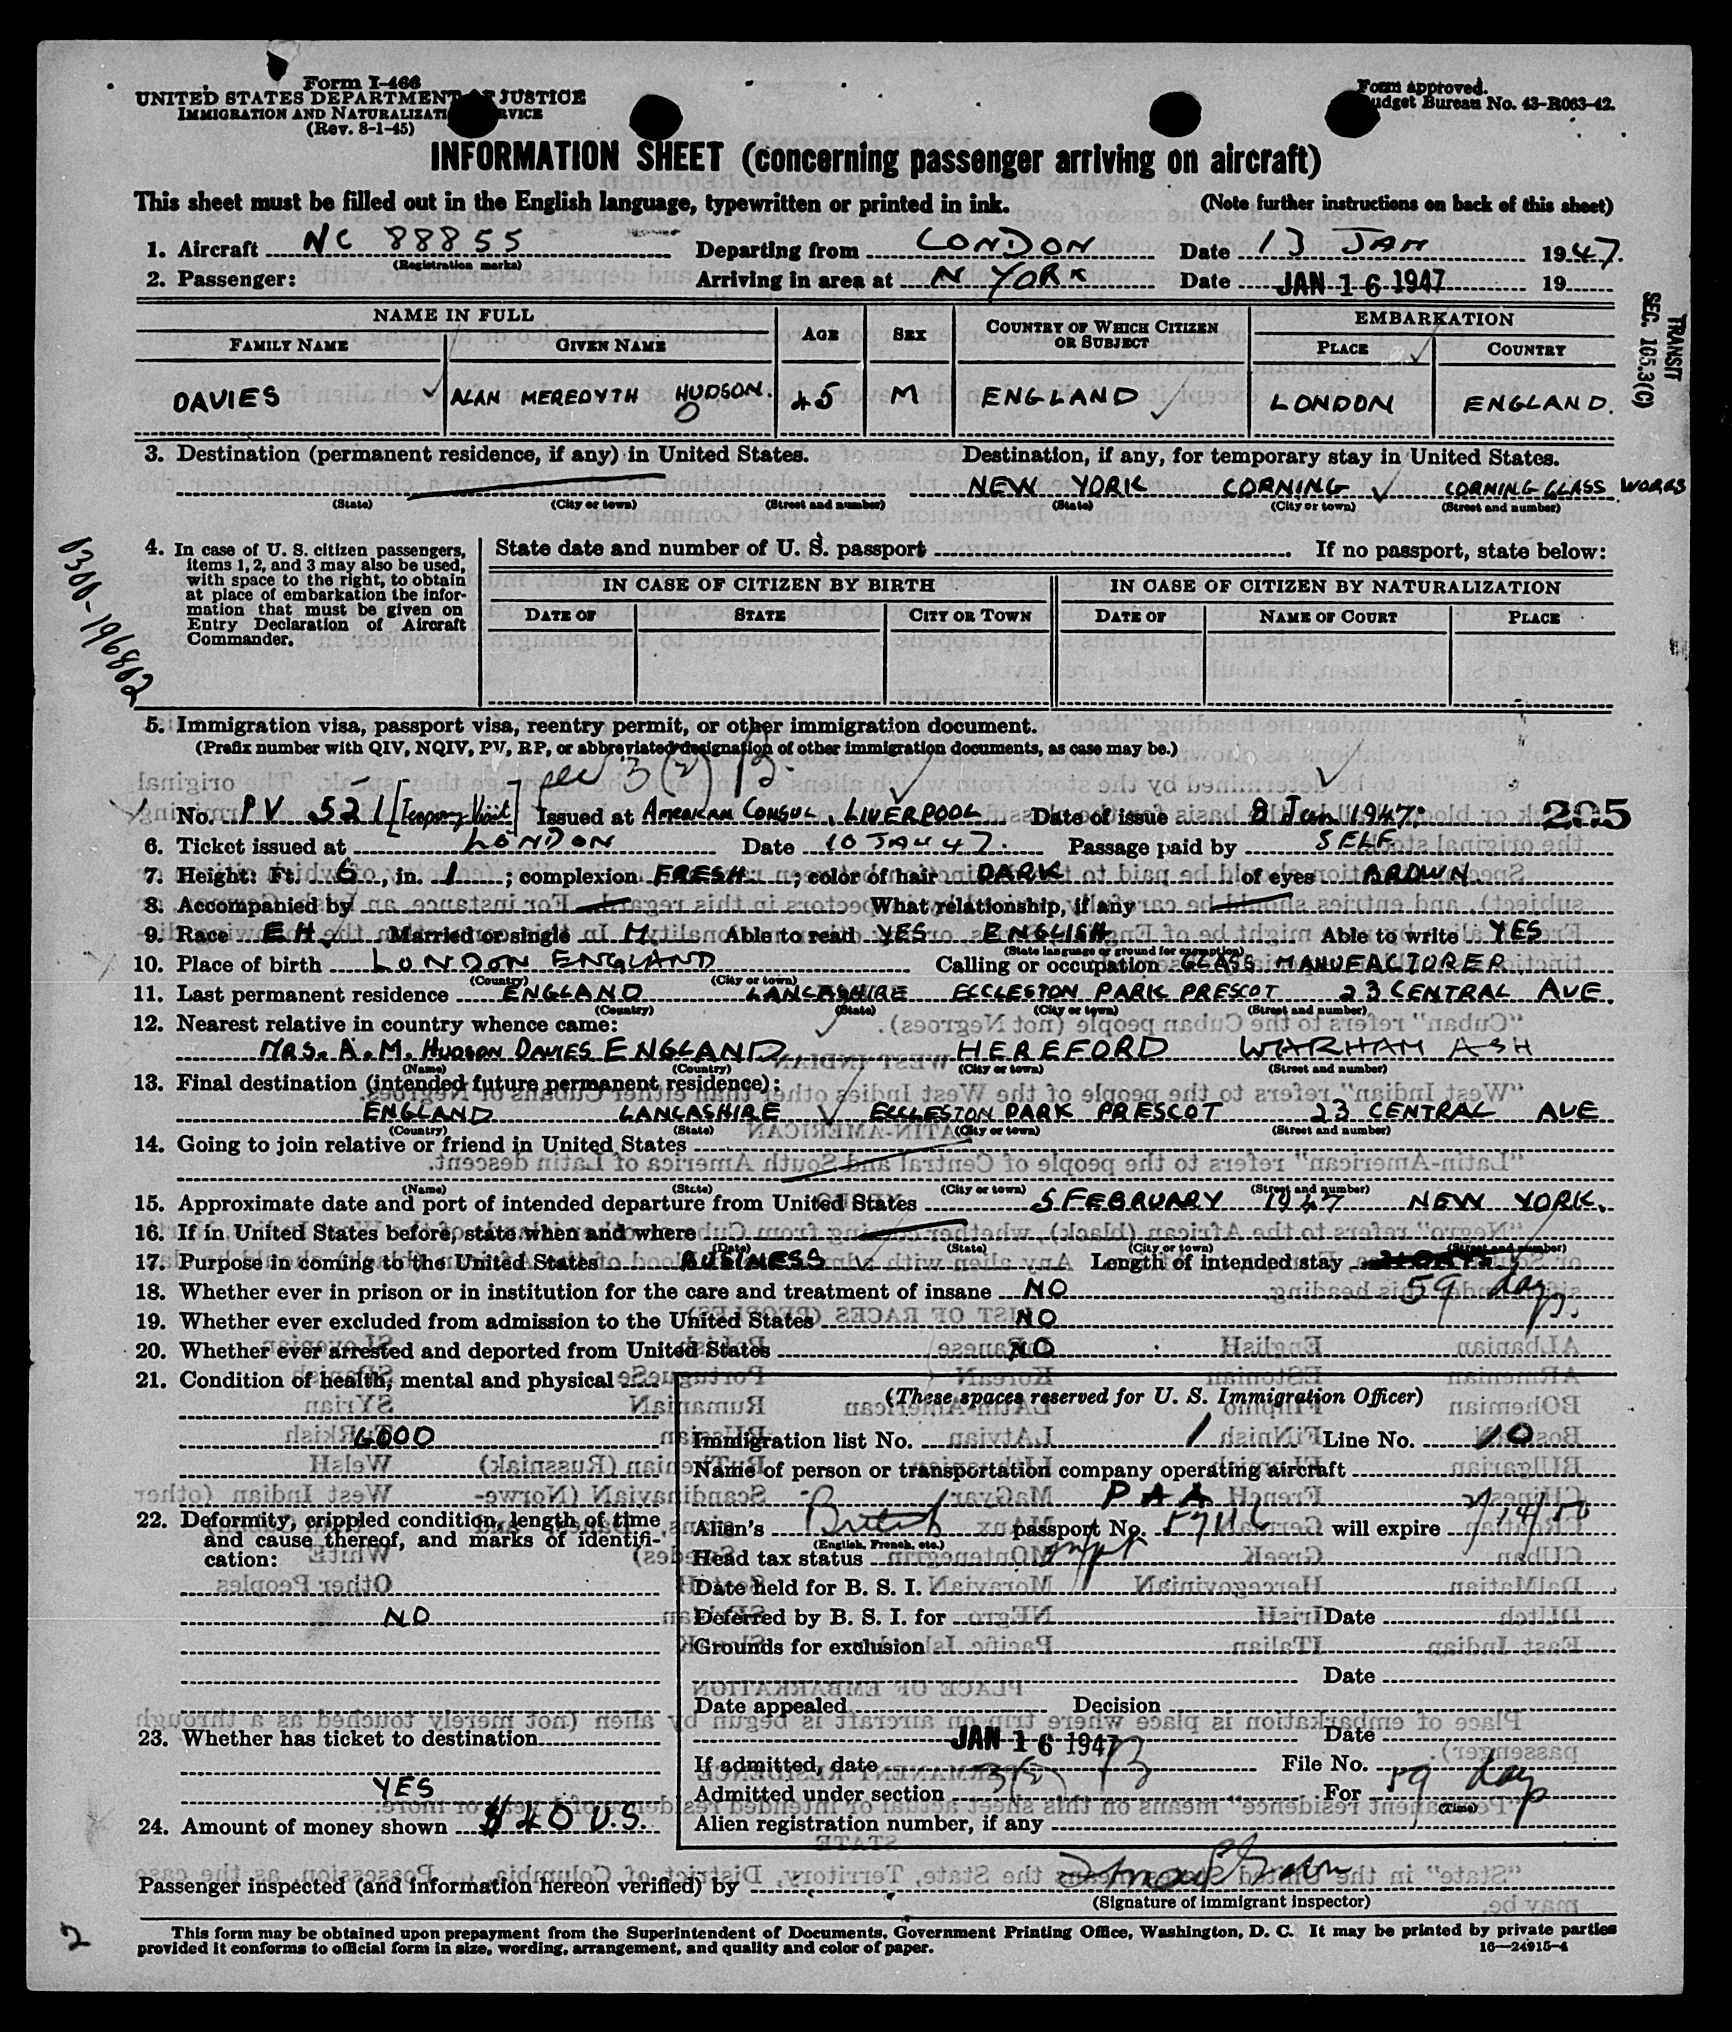 Form I-466
UNITED STATES DEPARTMENT OF JUSTICE
IMMIGRATION AND NATURALIZATION SERVICE
(Rev. 8-1-45)
Form approved.
Budget Bureau No. 43-R063-42.
INFORMATION SHEET (concerning passenger arriving on aircraft)
This sheet must be filled out in the English language, typewritten or printed in ink. (Note further instructions on back of this sheet)
1. Aircraft NC 88855 Departing from LONDON Date 13 JAN 1947.
(Registration marks)
2. Passenger: Arriving in area at N YORK Date JAN 16 1947 19
TRANSIT
SEC. 105.3(C)
NAME IN FULL AGE SEX COUNTRY OF WHICH CITIZEN OR SUBJECT EMBARKATION
FAMILY NAME GIVEN NAME PLACE COUNTRY
DAVIES ALAN MEREDYTH HUDSON. 45 M ENGLAND LONDON ENGLAND.
3. Destination (permanent residence, if any) in United States. Destination, if any, for temporary stay in United States.
NEW YORK CORNING CORNING GLASS WORKS
(State) (City or town) (Street and number) (State) (City or town) (Street and number)
0300-196802
4. In case of U. S. citizen passengers, items 1, 2, and 3 may also be used, with space to the right, to obtain at place of embarkation the information that must be given on Entry Declaration of Aircraft Commander.
State date and number of U. S. passport If no passport, state below:
IN CASE OF CITIZEN BY BIRTH IN CASE OF CITIZEN BY NATURALIZATION
DATE OF STATE CITY OR TOWN DATE OF NAME OF COURT PLACE
5. Immigration visa, passport visa, reentry permit, or other immigration document.
(Prefix number with QIV, NQIV, PV, RP, or abbreviated designation of other immigration documents, as case may be.)
sec 3(2) B.
No. PV 521 [Temporary Visit] Issued at AMERICAN CONSUL, LIVERPOOL Date of issue 8 Jan 1947. 205
6. Ticket issued at LONDON Date 10 JAN 47. Passage paid by SELF
7. Height: Ft. 6, in. 1; complexion FRESH; color of hair DARK of eyes BROWN.
8. Accompanied by What relationship, if any
9. Race EH. Married or single M Able to read YES ENGLISH Able to write YES
(State language or ground for exemption)
10. Place of birth LONDON ENGLAND Calling or occupation GLASS MANUFACTURER
(Country) (City or town)
11. Last permanent residence ENGLAND LANCASHIRE ECCLESTON PARK PRESCOT 23 CENTRAL AVE.
(Country) (State) (City or town) (Street and number)
12. Nearest relative in country whence came:
MRS. A. M. HUDSON DAVIES ENGLAND HEREFORD WARHAM ASH
(Name) (Country) (City or town) (Street and number)
13. Final destination (intended future permanent residence):
ENGLAND LANCASHIRE ECCLESTON PARK PRESCOT 23 CENTRAL AVE
(Country) (State) (City or town) (Street and number)
14. Going to join relative or friend in United States
(Name) (State) (City or town) (Street and number)
15. Approximate date and port of intended departure from United States 5 FEBRUARY 1947 NEW YORK.
16. If in United States before, state when and where
(Date) (State) (City or town) (Street and number)
17. Purpose in coming to the United States BUSINESS Length of intended stay
59 days.
18. Whether ever in prison or in institution for the care and treatment of insane NO
19. Whether ever excluded from admission to the United States NO
20. Whether ever arrested and deported from United States NO
21. Condition of health, mental and physical
GOOD
22. Deformity, crippled condition, length of time and cause thereof, and marks of identification:
NO
23. Whether has ticket to destination
YES
24. Amount of money shown $40 U.S.
(These spaces reserved for U. S. Immigration Officer)
Immigration list No. 1 Line No. 10
Name of person or transportation company operating aircraft
PAA
Alien's British passport No. will expire
(English, French, etc.)
Head tax status
Date held for B. S. I.
Deferred by B. S. I. for Date
Grounds for exclusion
Date
Date appealed Decision
Date
JAN 16 1947
If admitted, date File No.
Admitted under section 3(2) B For 59 days
(Time)
Alien registration number, if any
Passenger inspected (and information hereon verified) by
(Signature of immigrant inspector)
This form may be obtained upon prepayment from the Superintendent of Documents, Government Printing Office, Washington, D. C. It may be printed by private parties
provided it conforms to official form in size, wording, arrangement, and quality and color of paper. 16—24915-4
2